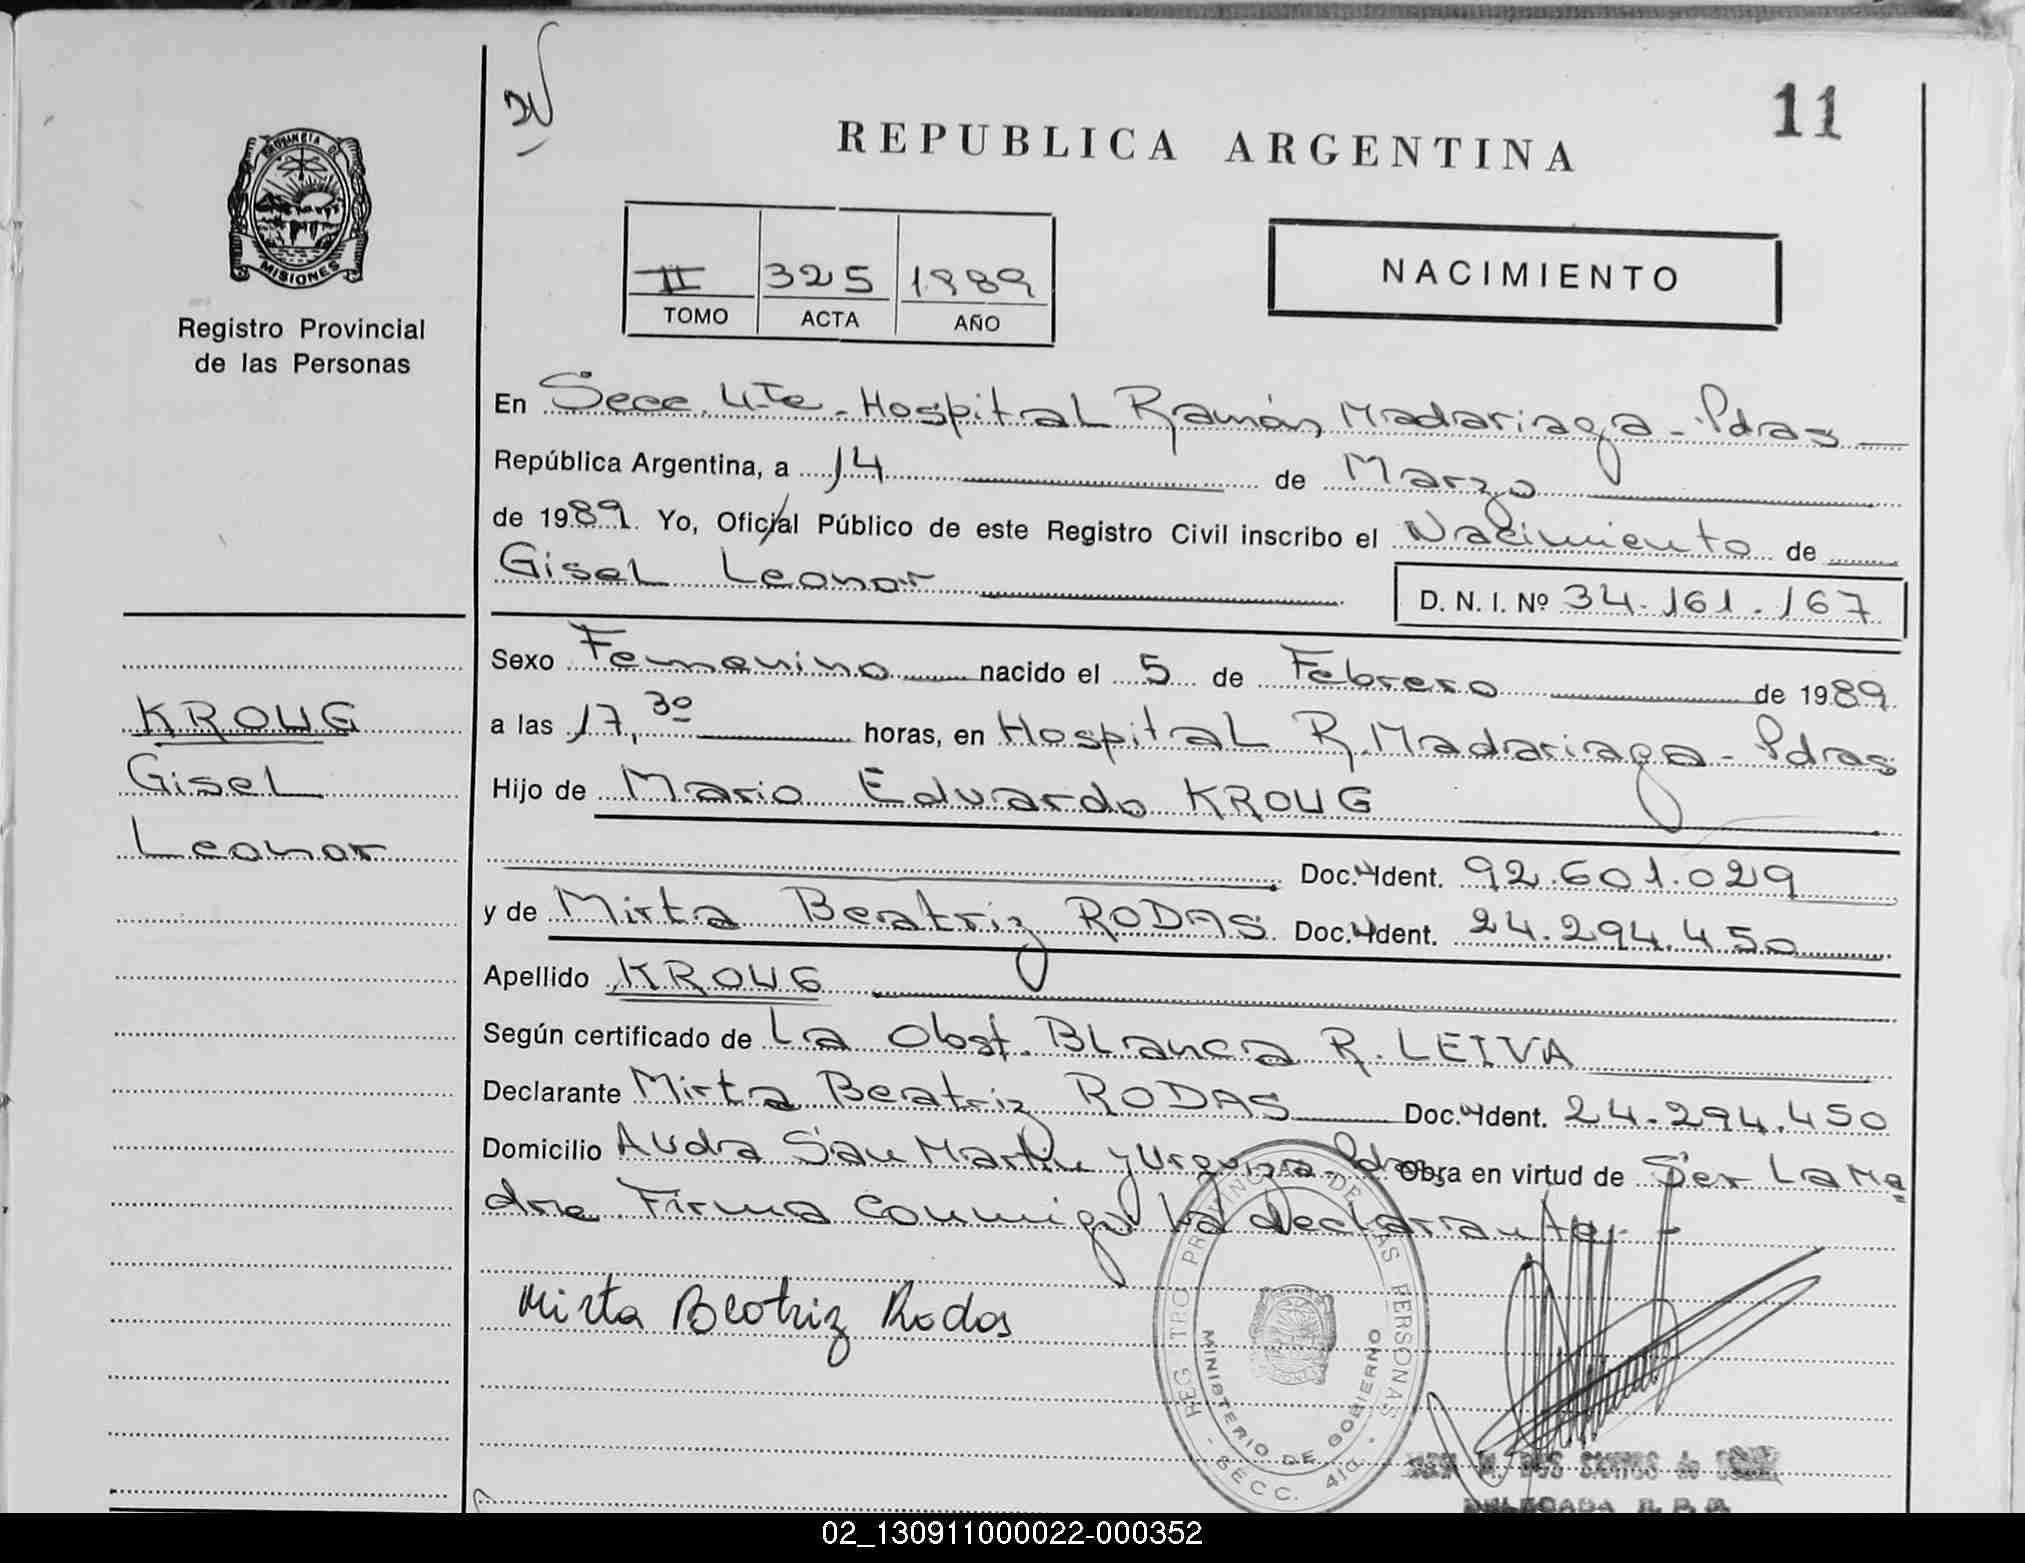 11
REPUBLICA ARGENTINA
PROVINCIA DE
MISIONES
Registro Provincial
de las Personas
II 325 1989
TOMO ACTA AÑO
NACIMIENTO
En Secc. 4ta - Hospital Ramón Madariaga - Pdas
República Argentina, a 14 de Marzo
de 1989. Yo, Oficial Público de este Registro Civil inscribo el Nacimiento de
Gisel Leonor D. N. I. Nº 34.161.167
Sexo Femenino nacido el 5 de Febrero de 1989
KROUG
Gisel
Leonor
a las 17,30 horas, en Hospital R. Madariaga - Pdas
Hijo de Mario Eduardo KROUG
Doc. Ident. 92.601.029
y de Mirta Beatriz RODAS Doc. Ident. 24.294.450
Apellido KROUG
Según certificado de La Obst. Blanca R. LEIVA
Declarante Mirta Beatriz RODAS Doc. Ident. 24.294.450
Domicilio Avdra San Martín y Urquiza - Pdas. Obra en virtud de Ser La Ma
dre Firma Conmigo La declarante. -
Mirta Beatriz Rodas
REGISTRO PROVINCIAL DE LAS PERSONAS
MINISTERIO DE GOBIERNO
- SECC. 4ta -
M. DOS SANTOS de
DELEGADA R. P. P.
02_130911000022-000352